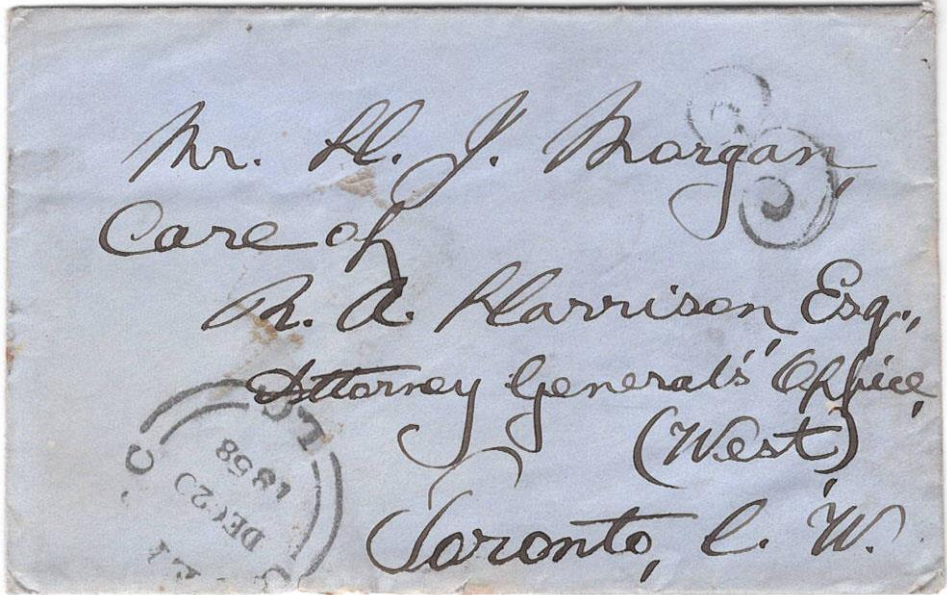 Mr. H. J. Morgan,
Care of
R. A. Harrison, Esq.,
Attorney General's Office,
(West)
Toronto, C. W.
3
1858